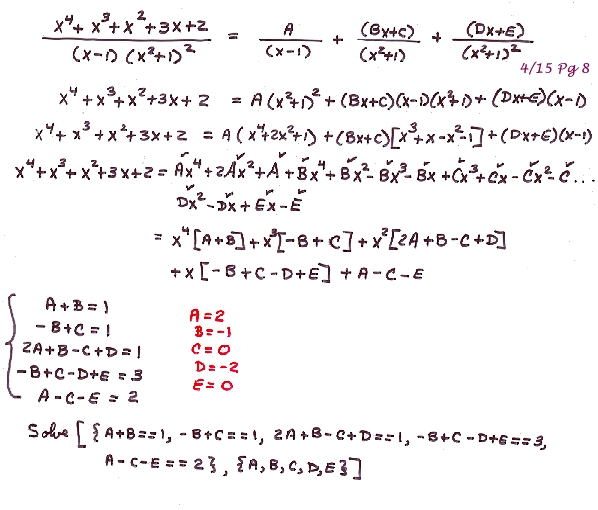 (x⁴ + x³ + x² + 3x + 2) / ((x-1) (x²+1)²) = A / (x-1) + (Bx+C) / (x²+1) + (Dx+E) / (x²+1)²
4/15 Pg 8
x⁴ + x³ + x² + 3x + 2 = A(x²+1)² + (Bx+C)(x-1)(x²+1) + (Dx+E)(x-1)
x⁴ + x³ + x² + 3x + 2 = A(x⁴+2x²+1) + (Bx+C)[x³+x-x²-1] + (Dx+E)(x-1)
x⁴+x³+x²+3x+2 = Ax⁴+2Ax²+A+Bx⁴+Bx²-Bx³-Bx+Cx³+Cx-Cx²-C...
Dx²-Dx+Ex-E
= x⁴[A+B]+x³[-B+C]+x²[2A+B-C+D]
+x[-B+C-D+E]+A-C-E
A+B=1
-B+C=1
2A+B-C+D=1
-B+C-D+E=3
A-C-E=2
A=2
B=-1
C=0
D=-2
E=0
Solve[{A+B==1, -B+C==1, 2A+B-C+D==1, -B+C-D+E==3,
A-C-E==2}, {A,B,C,D,E}]